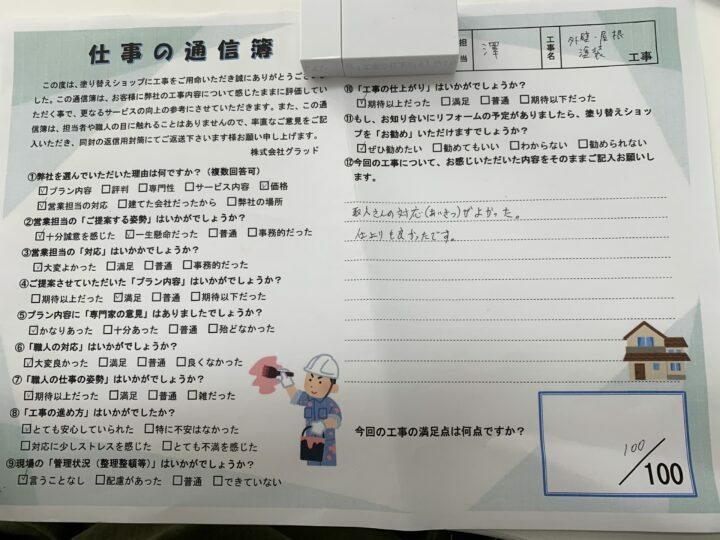 仕事の通信簿
この度は、塗り替えショップに工事をご用命いただき誠にありがとうござ
した。この通信簿は、お客様に弊社の工事内容について感じたままに評価してい
ただく事で、更なるサービスの向上の参考にさせていただきます。また、この通
信簿は、担当者や職人の目に触れることはありませんので、率直なご意見をご記
入いただき、同封の返信用封筒にてご返送下さいます様お願い申し上げます。
株式会社グラッド
①弊社を選んでいただいた理由は何ですか?(複数回答可)
☑プラン内容 □評判 □専門性 □サービス内容 ☑価格
☑営業担当の対応 □建てた会社だったから □弊社の場所
②営業担当の「ご提案する姿勢」はいかがでしょうか?
☑十分誠意を感じた ☑一生懸命だった □普通 □事務的だった
③営業担当の「対応」はいかかでしょうか?
☑大変よかった □満足 □普通 □事務的だった
④ご提案させていただいた「プラン内容」はいかがでしょうか?
□期待以上だった ☑満足 □普通 □期待以下だった
⑤プラン内容に「専門家の意見」はありましたでしょうか?
☑かなりあった □十分あった □普通 □殆どなかった
⑥「職人の対応」はいかがでしょうか?
☑大変良かった □満足 □普通 □良くなかった
⑦「職人の仕事の姿勢」はいかがでしょうか?
☑期待以上だった □満足 □普通 □雑だった
⑧「工事の進め方」はいかがでしたか?
☑とても安心していられた □特に不安はなかった
□対応に少しストレスを感じた □とても不満を感じた
⑨現場の「管理状況(整理整頓等)」はいかがでしょうか?
☑言うことなし □配慮があった □普通 □できていない
担当 澤 工事名 外壁・屋根塗装 工事
⑩「工事の仕上がり」はいかがでしょうか?
☑期待以上だった □満足 □普通 □期待以下だった
⑪もし、お知り合いにリフォームの予定がありましたら、塗り替えショッ
プを「お勧め」いただけますでしょうか?
☑ぜひ勧めたい □勧めてもいい □わからない □勧められない
⑫今回の工事について、お感じいただいた内容をそのままご記入お願いし
ます。
職人さんの対応(あいさつ)がよかった。
仕上りも良かったです。
今回の工事の満足点は何点ですか?
100/100